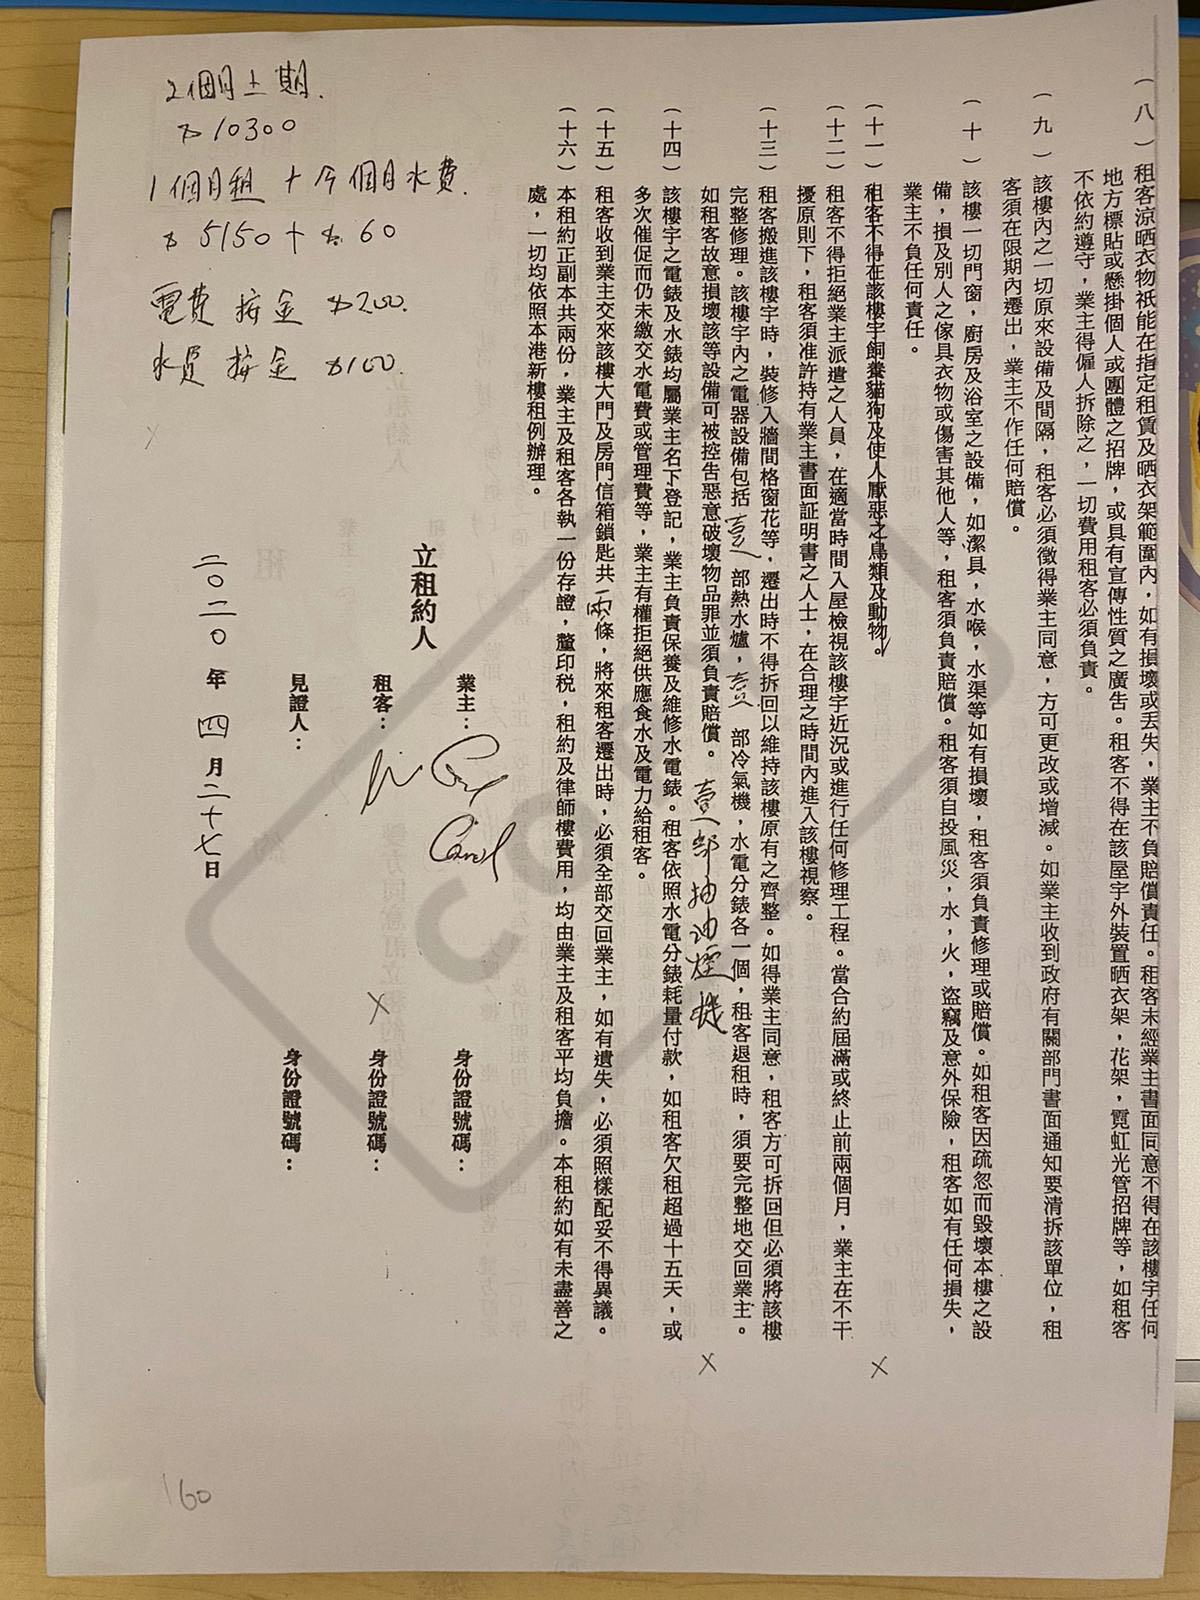 （八）租客涼晒衣物祇能在指定租賃及晒衣架範圍內，如有損壞或丟失，業主不負賠償責任。租客未經業主書面同意不得在該樓宇任何
地方標貼或懸掛個人或團體之招牌，或具有宣傳性質之廣告。租客不得在該屋宇外裝置晒衣架，花架，霓虹光管招牌等，如租客
不依約遵守，業主得僱人拆除之，一切費用租客必須負責。
（九）該樓內之一切原來設備及間隔，租客必須徵得業主同意，方可更改或增減。如業主收到政府有關部門書面通知要清拆該單位，租
客須在限期內遷出，業主不作任何賠償。
（十）該樓一切門窗，廚房及浴室之設備，如潔具，水喉，水渠等如有損壞，租客須負責修理或賠償。如租客因疏忽而毀壞本樓之設
備，損及別人之傢具衣物或傷害其他人等，租客須負責賠償。租客須自投風災，水，火，盜竊及意外保險，租客如有任何損失，
業主不負任何責任。
（十一）租客不得在該樓宇飼養貓狗及使人厭惡之鳥類及動物。
（十二）租客不得拒絕業主派遣之人員，在適當時間入屋檢視該樓宇近況或進行任何修理工程。當合約屆滿或終止前兩個月，業主在不干
擾原則下，租客須准許持有業主書面証明書之人士，在合理之時間內進入該樓視察。
（十三）租客搬進該樓宇時，裝修入牆間格窗花等，遷出時不得拆回以維持該樓原有之齊整。如得業主同意，租客方可拆回但必須將該樓
完整修理。該樓宇內之電器設備包括 壹 部熱水爐，壹 部冷氣機，水電分錶各一個，租客退租時，須要完整地交回業主。
如租客故意損壞該等設備可被控告惡意破壞物品罪並須負責賠償。 壹部抽油煙機
（十四）該樓宇之電錶及水錶均屬業主名下登記，業主負責保養及維修水電錶。租客依照水電分錶耗量付款，如租客欠租超過十五天，或
多次催促而仍未繳交水電費或管理費等，業主有權拒絕供應食水及電力給租客。
（十五）租客收到業主交來該樓大門及房門信箱鎖匙共 兩 條，將來租客遷出時，必須全部交回業主，如有遺失，必須照樣配妥不得異議。
（十六）本租約正副本共兩份，業主及租客各執一份存證，釐印税，租約及律師樓費用，均由業主及租客平均負擔。本租約如有未盡善之
處，一切均依照本港新樓租例辦理。
立租約人
業主： Carol
身份證號碼：
租客：
身份證號碼：
見證人：
身份證號碼：
二０二０年 四 月 二十七 日
2個月上期.
$10300
1個月租 + 今個月水費.
$5150 + $60
電費 按金 $200.
水費 按金 $100.
COPY
160